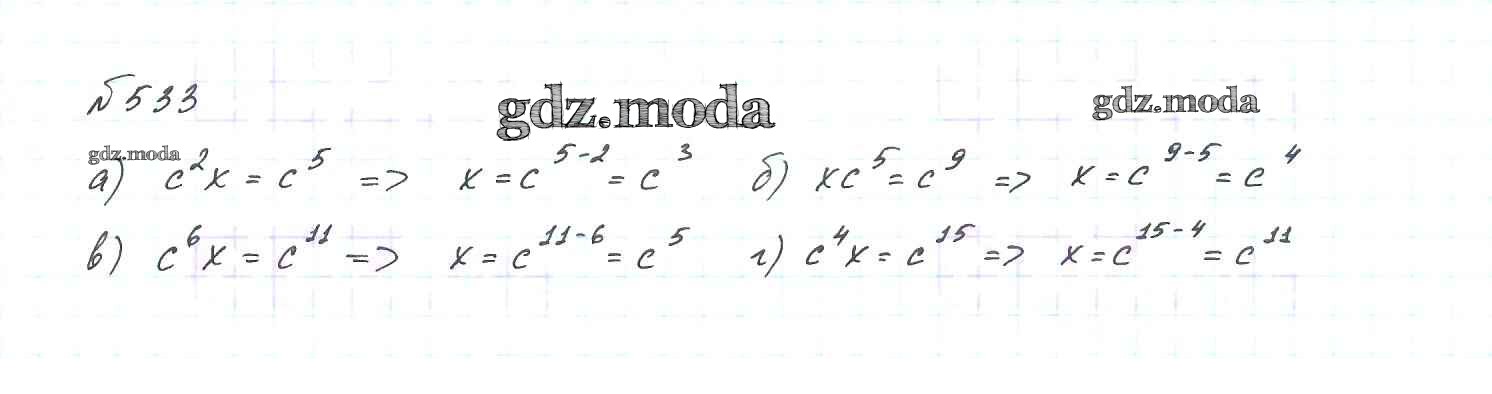 №533
gdz.moda
gdz.moda
gdz.moda
а) c²x = c⁵ => x = c⁵⁻² = c³ б) xc⁵ = c⁹ => x = c⁹⁻⁵ = c⁴
в) c⁶x = c¹¹ => x = c¹¹⁻⁶ = c⁵ г) c⁴x = c¹⁵ => x = c¹⁵⁻⁴ = c¹¹